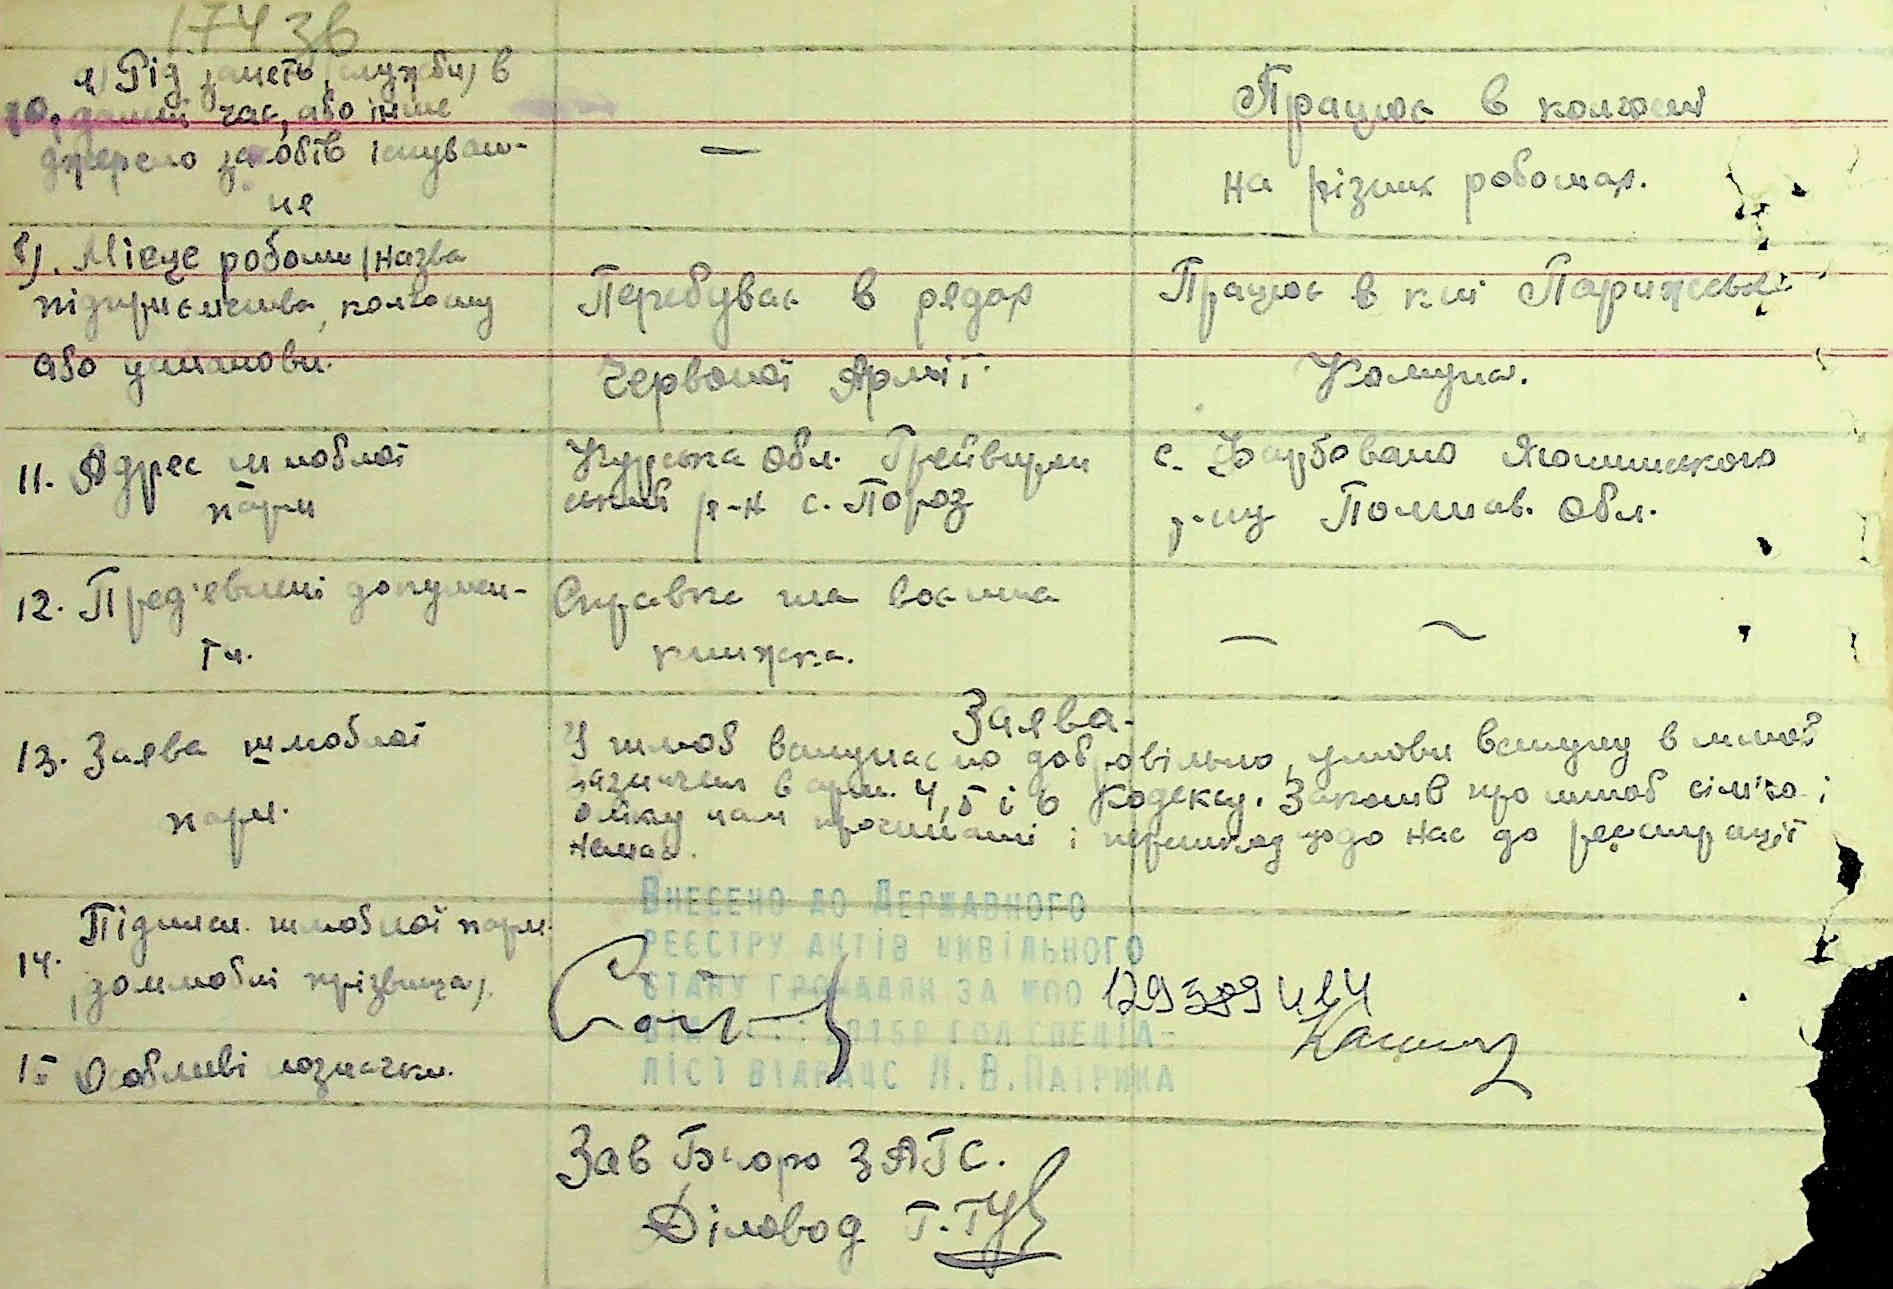 174 зв
а) Рід занять (служби) в
10. даний час, або інше
джерело засобів існуван-
ня
—
Працює в колгоспі
на різних роботах.
в). Місце роботи (назва
підприємства, колгоспу
або установи.
Перебуває в рядах
Червоної Армії.
Працює в к-пі Паризька
Комуна.
11. Адрес шлюбної
пари
Курська Обл. Грейворон
ський р-н с. Пороз
с. Фарбовано Яготинського
р-ну Полтав. Обл.
12. Пред'явлені докумен-
ти.
Справка та воєнна
книжка.
— ~
13. Заява шлюбної
пари.
Заява.
У шлюб вступаємо добровільно, умови вступу в шлюб
зазначені в арт. 4, 5 і 6 Кодексу. Законів про шлюб сім'ю і
опіку нам прочитані і перешкод щодо нас до реєстрації
немає.
14. Підписи шлюбної пари
(дошлюбні прізвища).
129389424
Внесено до Державного
реєстру актів цивільного
стану громадян за №00
ліст відрацс Л. В. Патрика
15 Особливі позначки.
Зав Бюро ЗАГС.
Діловод Г.